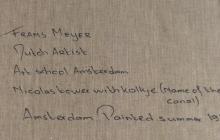 Frans Meyer
Dutch Artist
Art school Amsterdam
Nicolastower with kolkje (Name of the
canal)
Amsterdam Painted summer 19